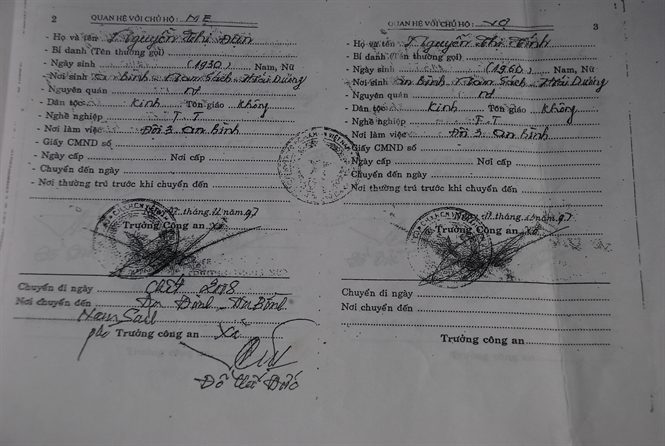 2 QUAN HỆ VỚI CHỦ HỘ: MẸ
- Họ và tên Nguyễn Thị Đặn
- Bí danh (Tên thường gọi)
- Ngày sinh (1930) Nam, Nữ
- Nơi sinh An Bình Nam Sách Hải Dương
- Nguyên quán nt
- Dân tộc Kinh Tôn giáo không
- Nghề nghiệp TT
- Nơi làm việc Đội 3 An Bình
- Giấy CMND số
- Ngày cấp Nơi cấp
- Chuyển đến ngày
- Nơi thường trú trước khi chuyển đến
tháng 12 năm 97
Trưởng Công an Xã
Chuyển đi ngày chết 2008
Nơi chuyển đến An Bình
Nam Sách
phó Trưởng công an Xã
QUAN HỆ VỚI CHỦ HỘ: VỢ 3
- Họ và tên Nguyễn Thị Bình
- Bí danh (Tên thường gọi)
- Ngày sinh (1960) Nam, Nữ
- Nơi sinh An Bình Nam Sách Hải Dương
- Nguyên quán nt
- Dân tộc Kinh Tôn giáo không
- Nghề nghiệp TT
- Nơi làm việc Đội 3 An Bình
- Giấy CMND số
- Ngày cấp Nơi cấp
- Chuyển đến ngày
- Nơi thường trú trước khi chuyển đến
tháng 12 năm 97
Trưởng Công an Xã
Chuyển đi ngày
Nơi chuyển đến
Trưởng công an